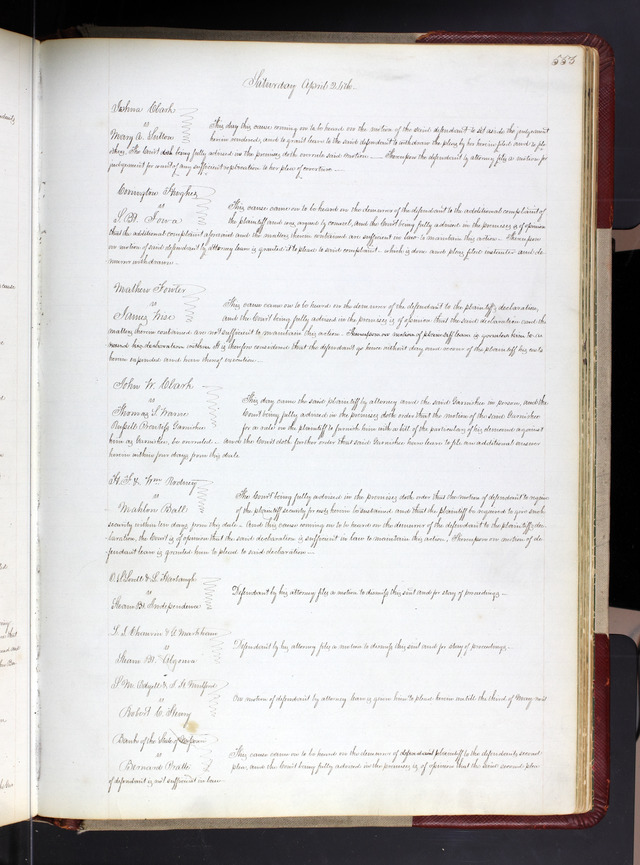 555
Saturday April 24th
Joshua Clark
vs
Mary A. Sutton
This day this cause coming on to be heard on the motion of the said defendant to set aside the judgement
herein rendered, and to grant leave to the said defendant to withdraw the plea by her herein filed and to file
others, the Court doth being fully advised on the premises doth overrule said motion — Thereupon the defendant by attorney files a motion for
judgement for want of any sufficient replication to her plea of coverture —
Covington Hughes
vs
S. Bt. Iowa
This cause came on to be heard on the demurrer of the defendant to the additional complaint of
the plaintiff and was argued by counsel, and the Court being fully advised on the premises is of opinion
that the additional complaint aforesaid and the matters therein contained are sufficient in law to maintain this action. Thereupon
on motion of said defendant by attorney leave is granted it to plead to said complaint. which is done and plea filed instanter and de-
murrer withdrawn
Mathew Fowler
vs
James Wise
This cause came on to be heard on the demurrer of the defendant to the plaintiffs declaration,
and the Court being fully advised in the premises is of opinion that the said declaration and the
matters herein contained are not sufficient to maintain this action. Thereupon on motion of plaintiff leave is granted him to a-
mend his declaration within It is therefore considered that the defendant go hence without day and recover of the plaintiff his costs
herein expended and have thereof execution
John W. Clark
vs
Thomas S. Warne
Russell Prentiss Garnishee
This day came the said plaintiff by attorney and the said Garnishee in person, and the
Court being fully advised in the premises doth order that the motion of the said Garnishee
for a rule on the plaintiff to furnish him with a bill of the particulars of his demand against
him as Garnishee, be overruled — and the Court doth further order that said Garnishee have leave to file an additional answer
herein within four days from this date
H. F. & Wm
vs
Mahlon Ball
The Court being fully advised in the premises doth order that the motion of defendant to require
of the plaintiff security for costs herein be sustained and that the plaintiff be required to give such
security within ten days from this date. And this cause coming on to be heard on the demurrer of the defendant to the plaintiffs dec-
laration, the Court is of opinion that the said declaration is sufficient in law to maintain this action. Thereupon on motion of de-
fendant leave is granted him to plead to said declaration
vs
Steam Bt. Independence
Defendant by his attorney files a motion to dismiss this suit and for stay of proceedings —
S. J. Chauvin & G. Markham
vs
Steam Bt. Algoma
Defendant by his attorney files a motion to dismiss this suit and for stay of proceedings —
vs
Robert C. Henry
On motion of defendant by attorney leave is given him to plead herein until the third of May next
Banks of the State of
vs
Bernard Pratte
This cause came on to be heard on the demurrer of defendant plaintiff to the defendants second
plea, and the Court being fully advised in the premises is of opinion that the said second plea
of defendant is not sufficient in law